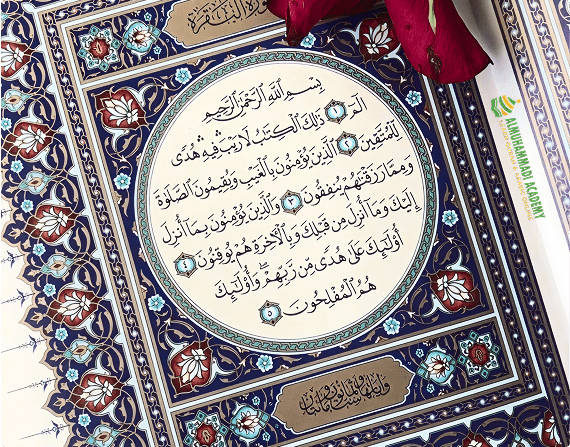 سورة البقرة
بِسْمِ ٱللَّهِ ٱلرَّحْمَٰنِ ٱلرَّحِيمِ
الٓمٓ ۝١ ذَٰلِكَ ٱلْكِتَٰبُ لَا رَيْبَ فِيهِ هُدًى
لِّلْمُتَّقِينَ ۝٢ ٱلَّذِينَ يُؤْمِنُونَ بِٱلْغَيْبِ وَيُقِيمُونَ ٱلصَّلَوٰةَ
وَمِمَّا رَزَقْنَٰهُمْ يُنفِقُونَ ۝٣ وَٱلَّذِينَ يُؤْمِنُونَ بِمَآ أُنزِلَ
إِلَيْكَ وَمَآ أُنزِلَ مِن قَبْلِكَ وَبِٱلْءَاخِرَةِ هُمْ يُوقِنُونَ ۝٤
أُو۟لَٰٓئِكَ عَلَىٰ هُدًى مِّن رَّبِّهِمْ ۖ وَأُو۟لَٰٓئِكَ
هُمُ ٱلْمُفْلِحُونَ ۝٥
ALMUHAMMADI ACADEMY